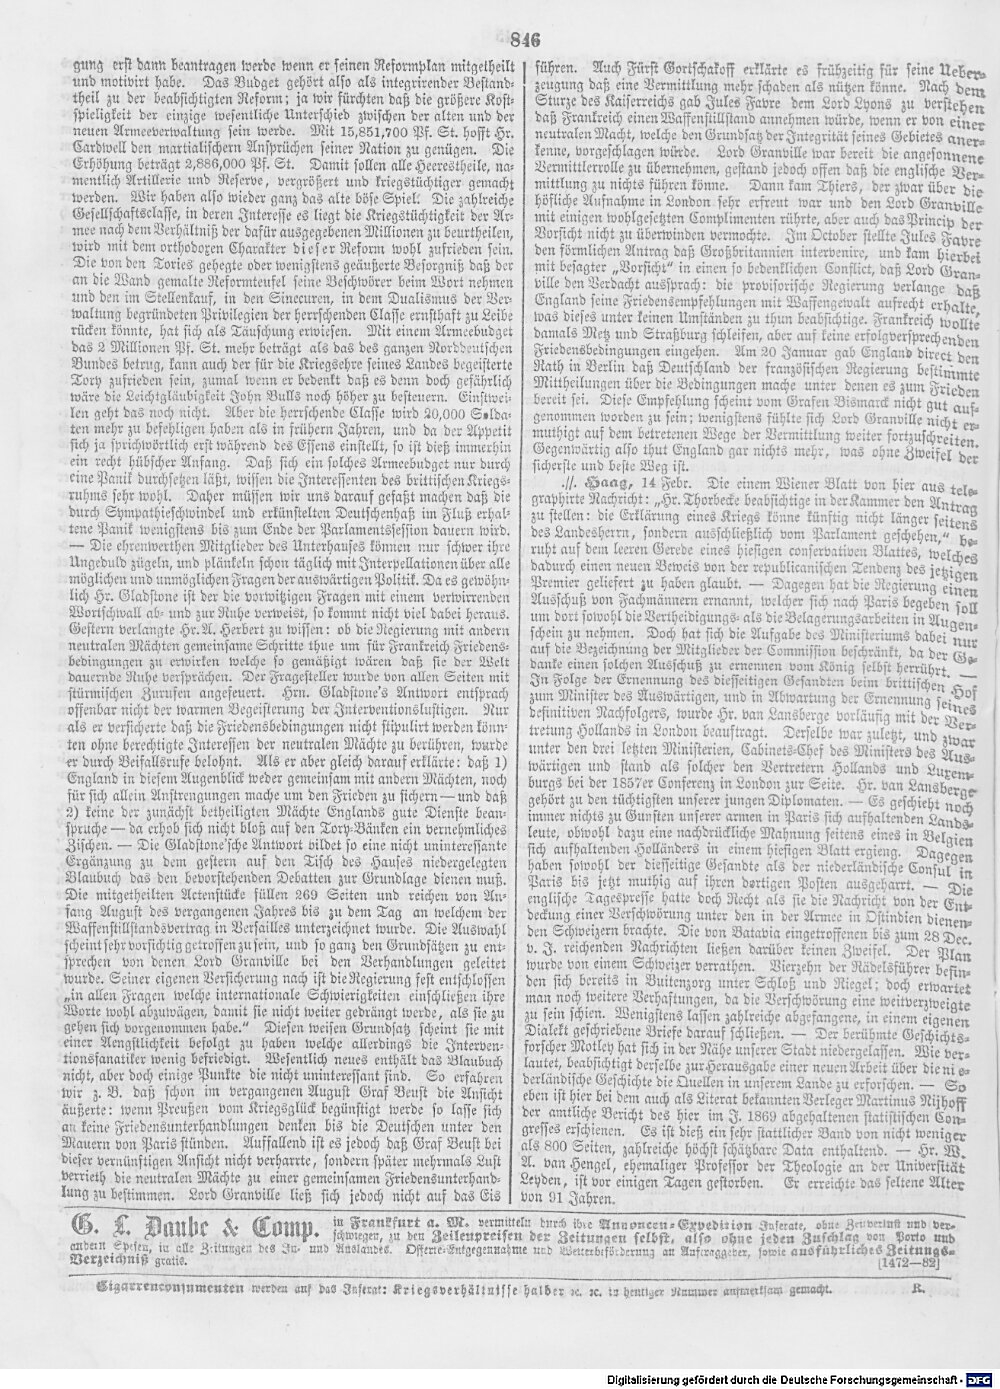 846
gung erst dann beantragen werde wenn er seinen Reformplan mitgetheilt
und motivirt habe. Das Budget gehört also als integrirender Bestand-
theil zu der beabsichtigten Reform; ja wir fürchten daß die größere Kost-
spieligkeit der einzige wesentliche Unterschied zwischen der alten und der
neuen Armeeverwaltung sein werde. Mit 15,851,700 Pf. St. hofft Hr.
Cardwell den martialischern Ansprüchen seiner Nation zu genügen. Die
Erhöhung beträgt 2,886,000 Pf. St. Damit sollen alle Heerestheile, na-
mentlich Artillerie und Reserve, vergrößert und kriegstüchtiger gemacht
werden. Wir haben also wieder ganz das alte böse Spiel: Die zahlreiche
Gesellschaftsclasse, in deren Interesse es liegt die Kriegstüchtigkeit der Ar-
mee nach dem Verhältniß der dafür ausgegebenen Millionen zu beurtheilen,
wird mit dem orthodoxen Charakter dieser Reform wohl zufrieden sein.
Die von den Tories gehegte oder wenigstens geäußerte Besorgniß daß der
an die Wand gemalte Reformteufel seine Beschwörer beim Wort nehmen
und den im Stellenkauf, in den Sinecuren, in dem Dualismus der Ver-
waltung begründeten Privilegien der herrschenden Classe ernsthaft zu Leibe
rücken könnte, hat sich als Täuschung erwiesen. Mit einem Armeebudget
das 2 Millionen Pf. St. mehr beträgt als das des ganzen Norddeutschen
Bundes betrug, kann auch der für die Kriegsehre seines Landes begeisterte
Tory zufrieden sein, zumal wenn er bedenkt daß es denn doch gefährlich
wäre die Leichtgläubigkeit John Bulls noch höher zu besteuern. Einstwei-
len geht das noch nicht. Aber die herrschende Classe wird 20,000 Solda-
ten mehr zu befehligen haben als in frühern Jahren, und da der Appetit
sich ja sprichwörtlich erst während des Essens einstellt, so ist dieß immerhin
ein recht hübscher Anfang. Daß sich ein solches Armeebudget nur durch
eine Panik durchsetzen läßt, wissen die Interessenten des brittischen Kriegs-
ruhms sehr wohl. Daher müssen wir uns darauf gefaßt machen daß die
durch Sympathieschwindel und erkünstelten Deutschenhaß im Fluß erhal-
tene Panik wenigstens bis zum Ende der Parlamentssession dauern wird.
— Die ehrenwerthen Mitglieder des Unterhauses können nur schwer ihre
Ungeduld zügeln, und plänkeln schon täglich mit Interpellationen über alle
möglichen und unmöglichen Fragen der auswärtigen Politik. Da es gewöhn-
lich Hr. Gladstone ist der die vorwitzigen Fragen mit einem verwirrenden
Wortschwall ab- und zur Ruhe verweist, so kommt nicht viel dabei heraus.
Gestern verlangte Hr. A. Herbert zu wissen: ob die Regierung mit andern
neutralen Mächten gemeinsame Schritte thue um für Frankreich Friedens-
bedingungen zu erwirken welche so gemäßigt wären daß sie der Welt
dauernde Ruhe versprächen. Der Fragesteller wurde von allen Seiten mit
stürmischen Zurufen angefeuert. Hrn. Gladstone's Antwort entsprach
offenbar nicht der warmen Begeisterung der Interventionslustigen. Nur
als er versicherte daß die Friedensbedingungen nicht stipulirt werden könn-
ten ohne berechtigte Interessen der neutralen Mächte zu berühren, wurde
er durch Beifallsrufe belohnt. Als er aber gleich darauf erklärte: daß 1)
England in diesem Augenblick weder gemeinsam mit andern Mächten, noch
für sich allein Anstrengungen mache um den Frieden zu sichern — und daß
2) keine der zunächst betheiligten Mächte Englands gute Dienste bean-
spruche — da erhob sich nicht bloß auf den Tory-Bänken ein vernehmliches
Zischen. — Die Gladstone'sche Antwort bildet so eine nicht uninteressante
Ergänzung zu dem gestern auf den Tisch des Hauses niedergelegten
Blaubuch das den bevorstehenden Debatten zur Grundlage dienen muß.
Die mitgetheilten Actenstücke füllen 269 Seiten und reichen von An-
fang August des vergangenen Jahres bis zu dem Tag an welchem der
Waffenstillstandsvertrag in Versailles unterzeichnet wurde. Die Auswahl
scheint sehr vorsichtig getroffen zu sein, und so ganz den Grundsätzen zu ent-
sprechen von denen Lord Granville bei den Verhandlungen geleitet
wurde. Seiner eigenen Versicherung nach ist die Regierung fest entschlossen
„in allen Fragen welche internationale Schwierigkeiten einschließen ihre
Worte wohl abzuwägen, damit sie nicht weiter gedrängt werde, als sie zu
gehen sich vorgenommen habe." Diesen weisen Grundsatz scheint sie mit
einer Aengstlichkeit befolgt zu haben welche allerdings die Interven-
tionsfanatiker wenig befriedigt. Wesentlich neues enthält das Blaubuch
nicht, aber doch einige Punkte die nicht uninteressant sind. So erfahren
wir z. B. daß schon im vergangenen August Graf Beust die Ansicht
äußerte: wenn Preußen vom Kriegsglück begünstigt werde so lasse sich
an keine Friedensunterhandlungen denken bis die Deutschen unter den
Mauern von Paris stünden. Auffallend ist es jedoch daß Graf Beust bei
dieser vernünftigen Ansicht nicht verharrte, sondern später mehrmals Lust
verrieth die neutralen Mächte zu einer gemeinsamen Friedensunterhand-
lung zu bestimmen. Lord Granville ließ sich jedoch nicht auf das Eis
führen. Auch Fürst Gortschakoff erklärte es frühzeitig für seine Ueber-
zeugung daß eine Vermittlung mehr schaden als nützen könne. Nach dem
Sturze des Kaiserreichs gab Jules Favre dem Lord Lyons zu verstehen
daß Frankreich einen Waffenstillstand annehmen würde, wenn er von einer
neutralen Macht, welche den Grundsatz der Integrität seines Gebietes aner-
kenne, vorgeschlagen würde. Lord Granville war bereit die angesonnene
Vermittlerrolle zu übernehmen, gestand jedoch offen daß die englische Ver-
mittlung zu nichts führen könne. Dann kam Thiers, der zwar über die
höfliche Aufnahme in London sehr erfreut war und den Lord Granville
mit einigen wohlgesetzten Complimenten rührte, aber auch das Princip der
Vorsicht nicht zu überwinden vermochte. Im October stellte Jules Favre
den förmlichen Antrag daß Großbritannien intervenire, und kam hierbei
mit besagter „Vorsicht" in einen so bedenklichen Conflict, daß Lord Gran-
ville den Verdacht aussprach: die provisorische Regierung verlange daß
England seine Friedensempfehlungen mit Waffengewalt aufrecht erhalte,
was dieses unter keinen Umständen zu thun beabsichtige. Frankreich wollte
damals Metz und Straßburg schleifen, aber auf keine erfolgversprechenden
Friedensbedingungen eingehen. Am 20 Januar gab England direct den
Rath in Berlin daß Deutschland der französischen Regierung bestimmte
Mittheilungen über die Bedingungen mache unter denen es zum Frieden
bereit sei. Diese Empfehlung scheint vom Grafen Bismarck nicht gut auf-
genommen worden zu sein; wenigstens fühlte sich Lord Granville nicht er-
muthigt auf dem betretenen Wege der Vermittlung weiter fortzuschreiten.
Gegenwärtig also thut England gar nichts mehr, was ohne Zweifel der
sicherste und beste Weg ist.
.//. Haag, 14 Febr. Die einem Wiener Blatt von hier aus tele-
graphirte Nachricht: „Hr. Thorbecke beabsichtige in der Kammer den Antrag
zu stellen: die Erklärung eines Kriegs könne künftig nicht länger seitens
des Landesherrn, sondern ausschließlich vom Parlament geschehen," be-
ruht auf dem leeren Gerede eines hiesigen conservativen Blattes, welches
dadurch einen neuen Beweis von der republicanischen Tendenz des jetzigen
Premier geliefert zu haben glaubt. — Dagegen hat die Regierung einen
Ausschuß von Fachmännern ernannt, welcher sich nach Paris begeben soll
um dort sowohl die Vertheidigungs- als die Belagerungsarbeiten in Augen-
schein zu nehmen. Doch hat sich die Aufgabe des Ministeriums dabei nur
auf die Bezeichnung der Mitglieder der Commission beschränkt, da der Ge-
danke einen solchen Ausschuß zu ernennen vom König selbst herrührt. —
In Folge der Ernennung des diesseitigen Gesandten beim brittischen Hof
zum Minister des Auswärtigen, und in Abwartung der Ernennung seines
definitiven Nachfolgers, wurde Hr. van Lansberge vorläufig mit der Ver-
tretung Hollands in London beauftragt. Derselbe war zuletzt, und zwar
unter den drei letzten Ministerien, Cabinets-Chef des Ministers des Aus-
wärtigen und stand als solcher den Vertretern Hollands und Luxem-
burgs bei der 1857er Conferenz in London zur Seite. Hr. van Lansberge
gehört zu den tüchtigsten unserer jungen Diplomaten. — Es geschieht noch
immer nichts zu Gunsten unserer armen in Paris sich aufhaltenden Lands-
leute, obwohl dazu eine nachdrückliche Mahnung seitens eines in Belgien
sich aufhaltenden Holländers in einem hiesigen Blatt ergieng. Dagegen
haben sowohl der diesseitige Gesandte als der niederländische Consul in
Paris bis jetzt muthig auf ihren dortigen Posten ausgeharrt. — Die
englische Tagespresse hatte doch Recht als sie die Nachricht von der Ent-
deckung einer Verschwörung unter den in der Armee in Ostindien dienen-
den Schweizern brachte. Die von Batavia eingetroffenen bis zum 28 Dec.
v. J. reichenden Nachrichten ließen darüber keinen Zweifel. Der Plan
wurde von einem Schweizer verrathen. Vierzehn der Rädelsführer befin-
den sich bereits in Buitenzorg unter Schloß und Riegel; doch erwartet
man noch weitere Verhaftungen, da die Verschwörung eine weitverzweigte
zu sein schien. Wenigstens lassen zahlreiche abgefangene, in einem eigenen
Dialekt geschriebene Briefe darauf schließen. — Der berühmte Geschichts-
forscher Motley hat sich in der Nähe unserer Stadt niedergelassen. Wie ver-
lautet, beabsichtigt derselbe zur Herausgabe einer neuen Arbeit über die nie-
derländische Geschichte die Quellen in unserem Lande zu erforschen. — So
eben ist hier bei dem auch als Literat bekannten Verleger Martinus Nijhoff
der amtliche Bericht des hier im J. 1869 abgehaltenen statistischen Con-
gresses erschienen. Es ist dieß ein sehr stattlicher Band von nicht weniger
als 800 Seiten, zahlreiche höchst schätzbare Data enthaltend. — Hr. W.
A. van Hengel, ehemaliger Professor der Theologie an der Universität
Leyden, ist vor einigen Tagen gestorben. Er erreichte das seltene Alter
von 91 Jahren.
G. L. Daube & Comp. in Frankfurt a. M. vermitteln durch ihre Annoncen-Expedition Inserate, ohne Zeitverlust und ver-
schwiegen, zu den Zeilenpreisen der Zeitungen selbst, also ohne jeden Zuschlag von Porto und
andern Spesen, in alle Zeitungen des In- und Auslandes. Offerte-Entgegennahme und Weiterbeförderung an Auftraggeber, sowie ausführliches Zeitungs-
Verzeichniß gratis. [1472—82]
Cigarrenconsumenten werden auf das Inserat: Kriegsverhältnisse halber ꝛc. ꝛc. in heutiger Nummer aufmerksam gemacht. R.
Digitalisierung gefördert durch die Deutsche Forschungsgemeinschaft - DFG